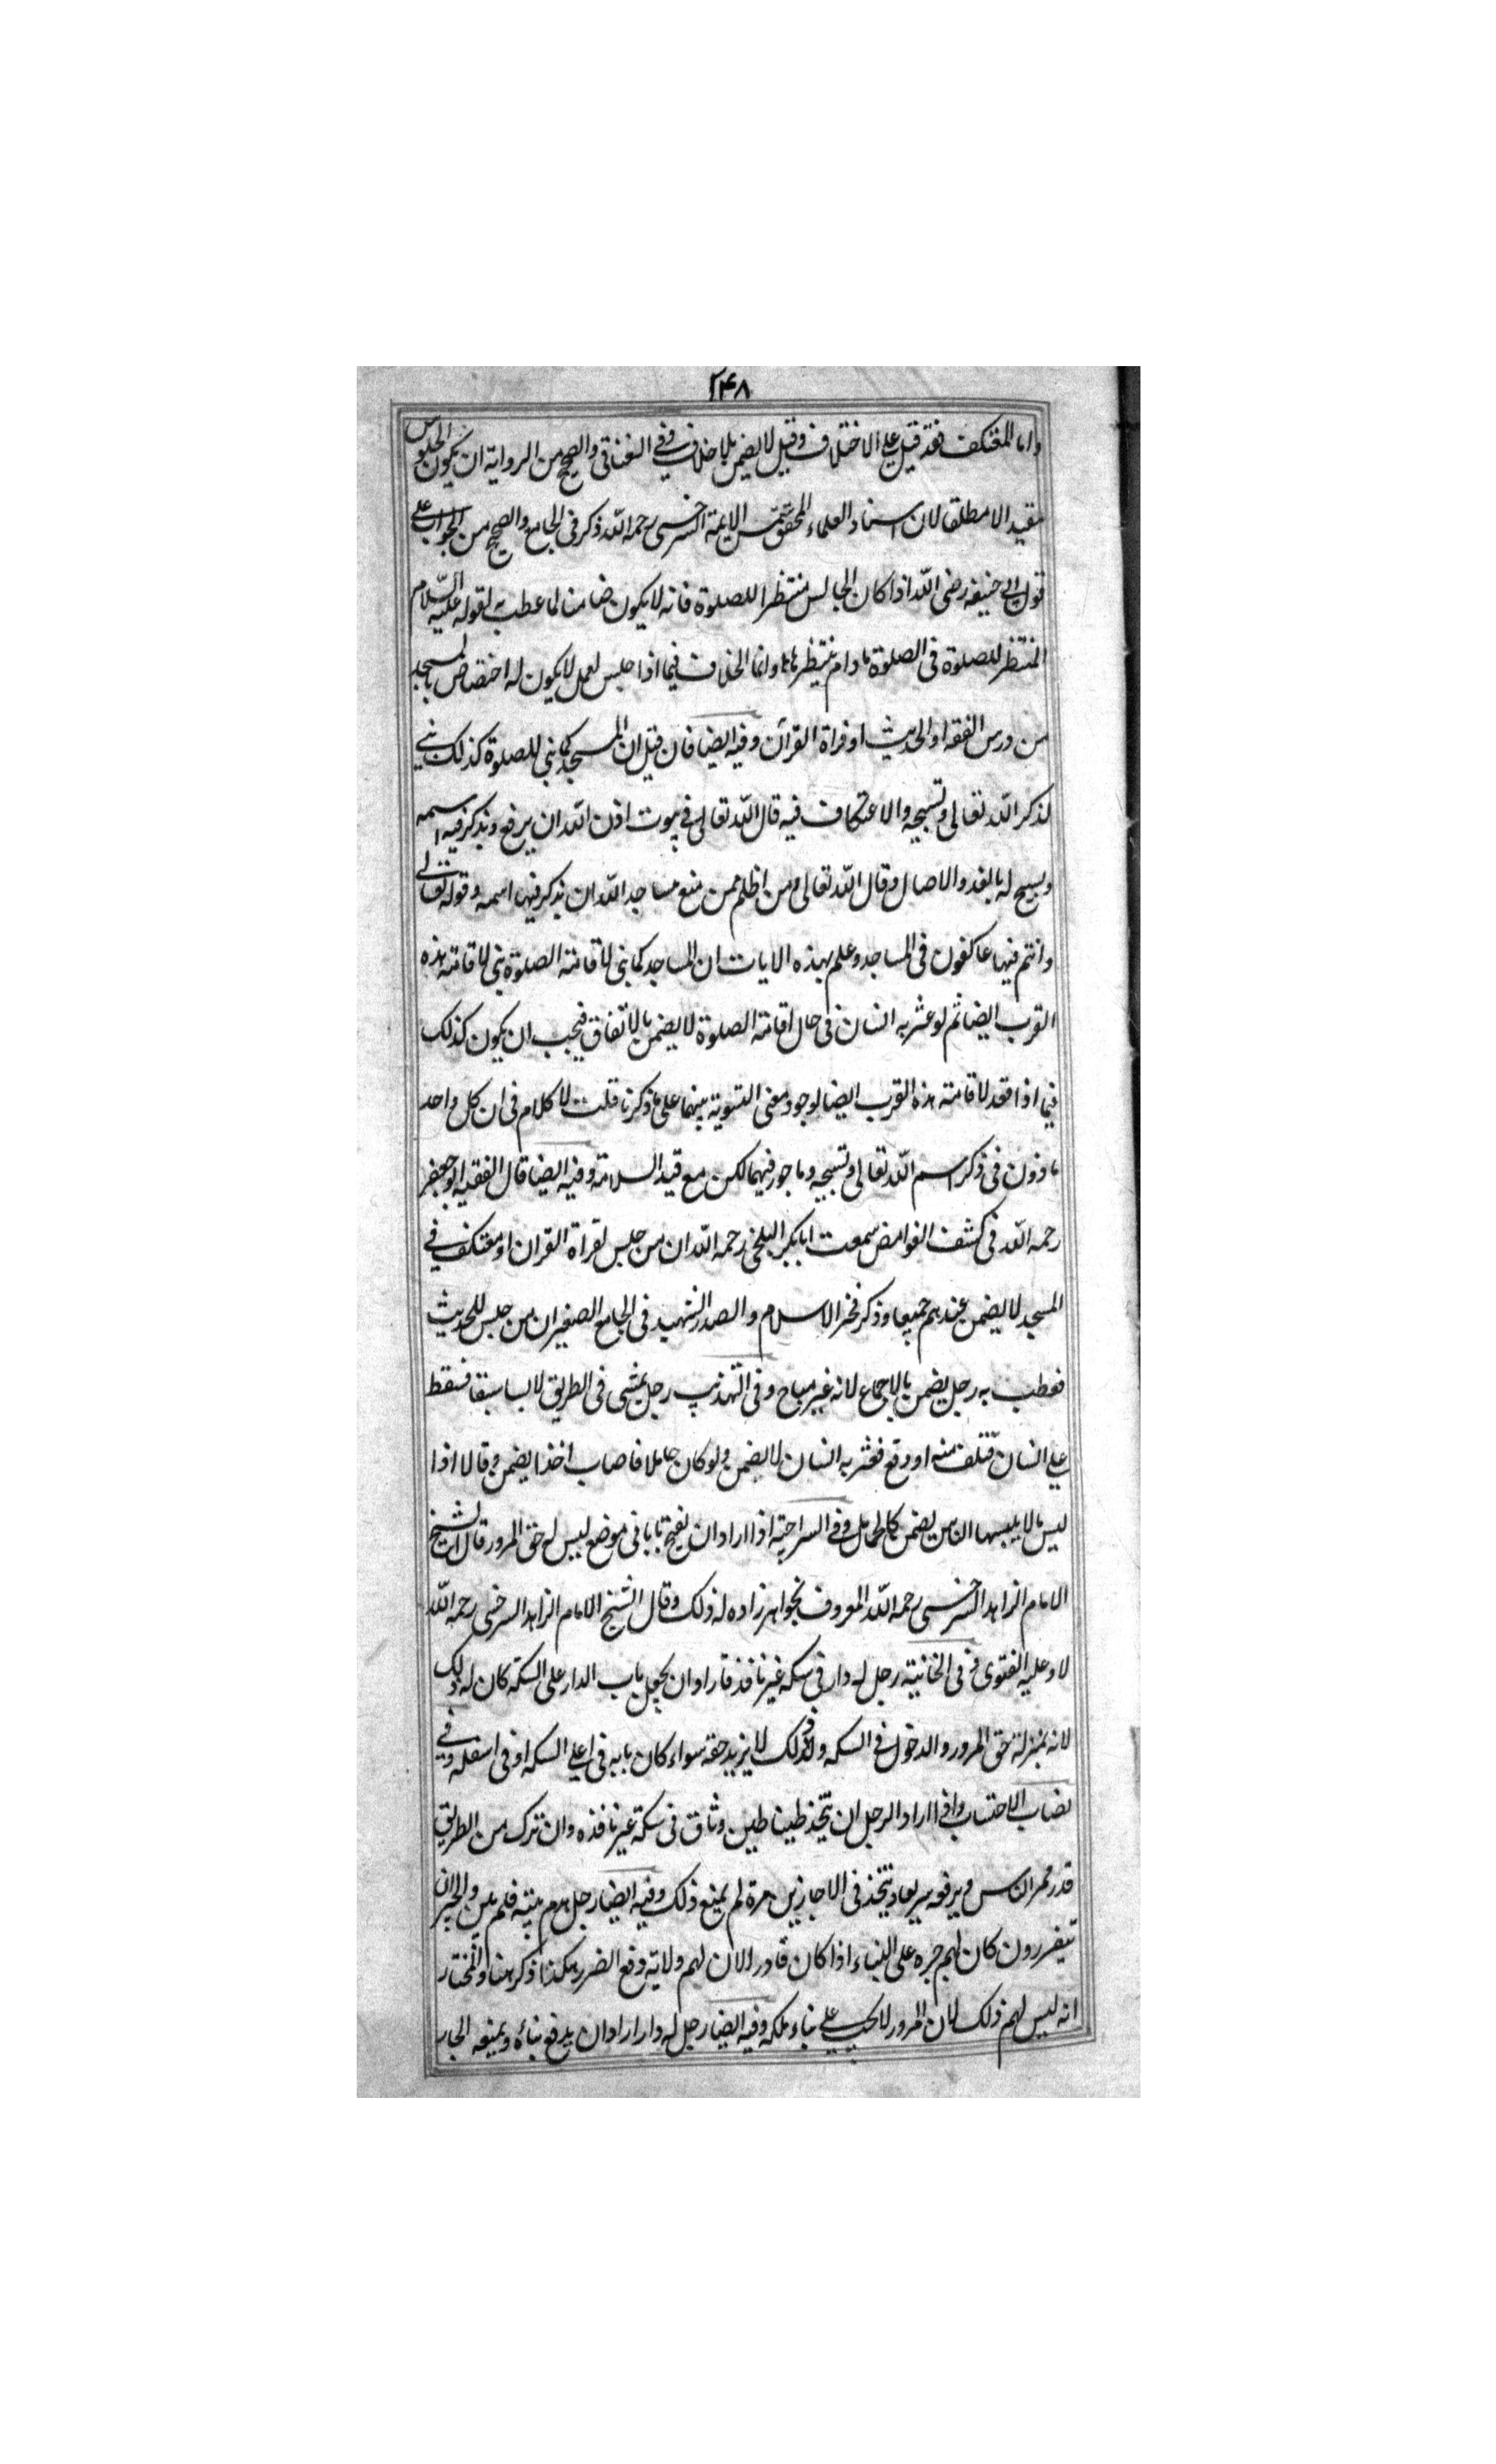 ٢۴٨
واما المعتكف فقد قيل على الاختلاف وقيل لا يضمن بلا خلاف وفي الغناقى والصحيح من الرواية ان يكون الجلوس
مقيدا لا مطلقا لان استاد العلماء المحقق شمس الايمة السرخسى رحمه الله ذكر فى الجامع والصحيح من الجواب على
قول ابى حنيفه رضى الله اذا كان الجالس منتظرا للصلوة فانه لا يكون ضامنا لما عطب به لقوله عليه السلام
المنتظر للصلوة فى الصلوة ما دام ينتظرها وانما الخلاف فيما اذا جلس لعمل لا يكون له اختصاص بالمسجد
من درس الفقه او الحديث او قراة القرآن وفيه ايضا فان قيل ان المسجد كما بنى للصلوة كذلك بنى
لذكر الله تعالى وتسبيحه والاعتكاف فيه قال الله تعالى فى بيوت اذن الله ان يرفع ويذكر فيه اسمه
ويسبح له بالغدو والاصال وقال الله تعالى ومن اظلم ممن منع مساجد الله ان يذكر فيها اسمه وقوله تعالى
وانتم فيها عاكفون فى المساجد وعلم بهذه الايات ان المساجد كما بنى لاقامته الصلوة بنى لاقامته هذه
القرب ايضا ثم لو عثر به انسان فى حال اقامته الصلوة لا يضمن بالاتفاق فيجب ان يكون كذلك
فيما اذا قعد لاقامته هذه القرب ايضا لوجود معنى التسوية بينهما على ما ذكرنا قلت لا كلام فى ان كل واحد
ماذون فى ذكر اسم الله تعالى وتسبيحه وماجور فيهما لكن مع قيد السلامة وفيه ايضا قال الفقيه ابو جعفر
رحمه الله فى كشف الغوامض سمعت ابا بكر البلخى رحمه الله ان من جلس لقراة القران او معتكف فى
المسجد لا يضمن عندهم جميعا وذكر فخر الاسلام والصدر الشهيد فى الجامع الصغير ان من جلس للحديث
فعطب به رجل يضمن بالاجماع لانه غير مباح وفى التهذيب رجل يمشى فى الطريق لابسا فسقط
على انسان فتلف منه او وقع فعثر به انسان لا يضمن ولو كان حاملا فاصاب اخذا يضمن وقالا اذا
لبس ما لا يلبسها الناس يضمن كالحامل وفى السراجية اذا اراد ان يفتح بابا فى موضع ليس له حق المرور قال الشيخ
الامام الزاهد السرخسى رحمه الله المعروف بخواهرزاده له ذلك وقال الشيخ الامام الزاهد السرخسى رحمه الله
لا وعليه الفتوى وفى الخانية رجل له دار فى سكه غير نافذة فاراد ان يجعل باب الدار على السكه كان له ذلك
لانه بمنزلة حق المرور والدخول فى السكه ولذلك لا يزيد حقه سواء كان بابه فى اعلى السكه او فى اسفله وفى
نصاب الاحتساب واذا اراد الرجل ان يتخذ طينا طين وثاق فى سكة غير نافذه وان ترك من الطريق
قدر ممر الناس ويرفعه سريعا ويتخذ فى الاحايين مرة لم يمنع ذلك وفيه ايضا رجل هدم بيته فلم يبن والجيران
يتضررون كان لهم جبره على البناء اذا كان قادرا لان لهم ولاية دفع الضرر هكذا ذكر هنا والمختار
انه ليس لهم ذلك لان المرور لا يجب على بناء ملكه وفيه ايضا رجل له دار اراد ان يرفع بناؤه ويمنعه الجار